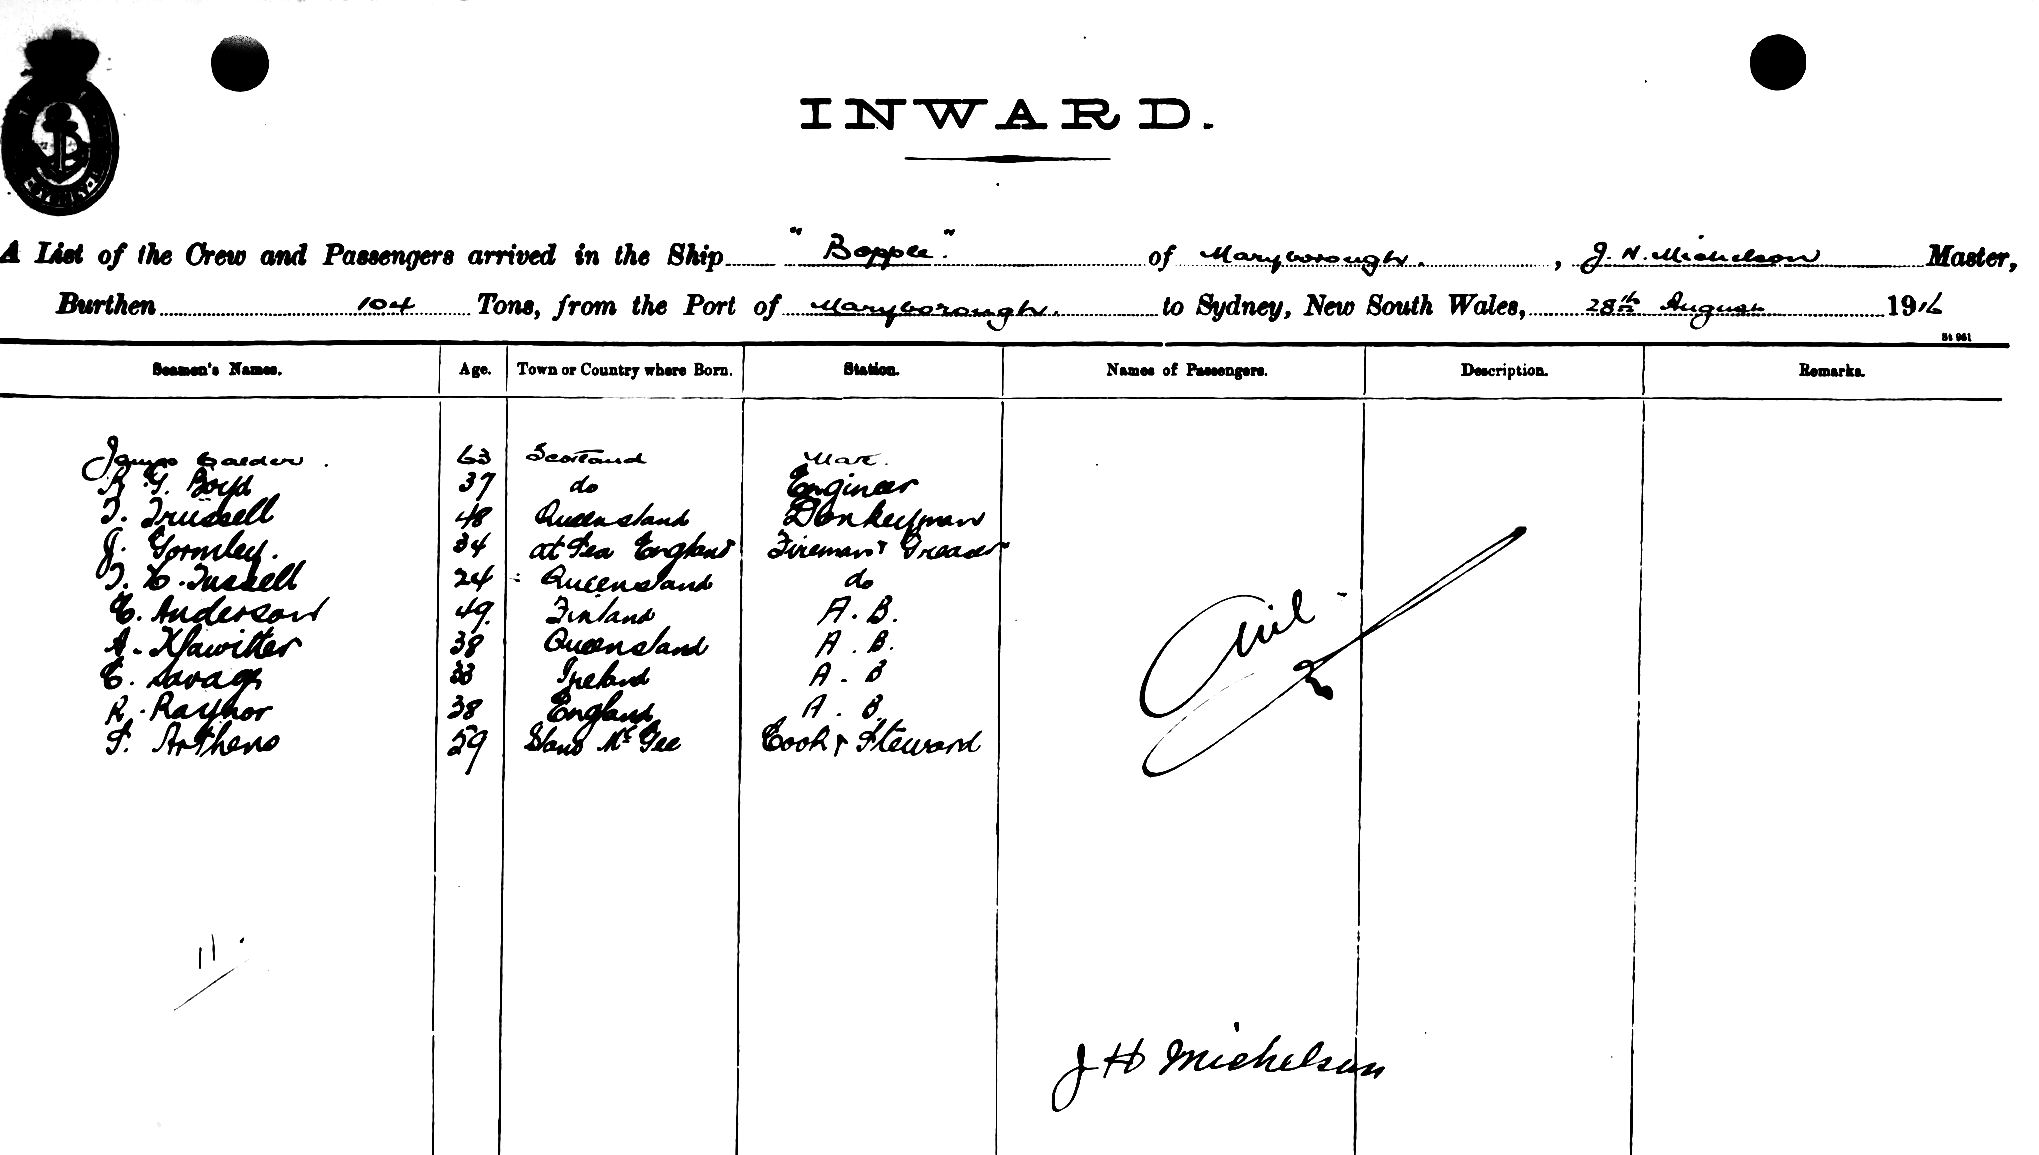 INWARD.
A List of the Crew and Passengers arrived in the Ship "Bopple" of Maryborough, J. H. Michelson Master,
Burthen 104 Tons, from the Port of Maryborough. to Sydney, New South Wales, 28th August 1916
St 961
Seamen's Names. Age. Town or Country where Born. Station. Names of Passengers. Description. Remarks.
James Calder. 63 Scotland Mate.
R. G. Boyd 37 do Engineer
T. Trussell 48 Queensland Donkeyman
J. Gormley. 34 at Sea England Fireman & Greaser
T. 24 Queensland do
C. Anderson 49. Finland A. B.
A. Klawitter 38 Queensland A. B.
C. Savage 33 Ireland A. B
R. Raynor 38 England A. B.
F. Arthens 59 Island Mc Gee Cook & Steward
Nil
11
J H Michelson